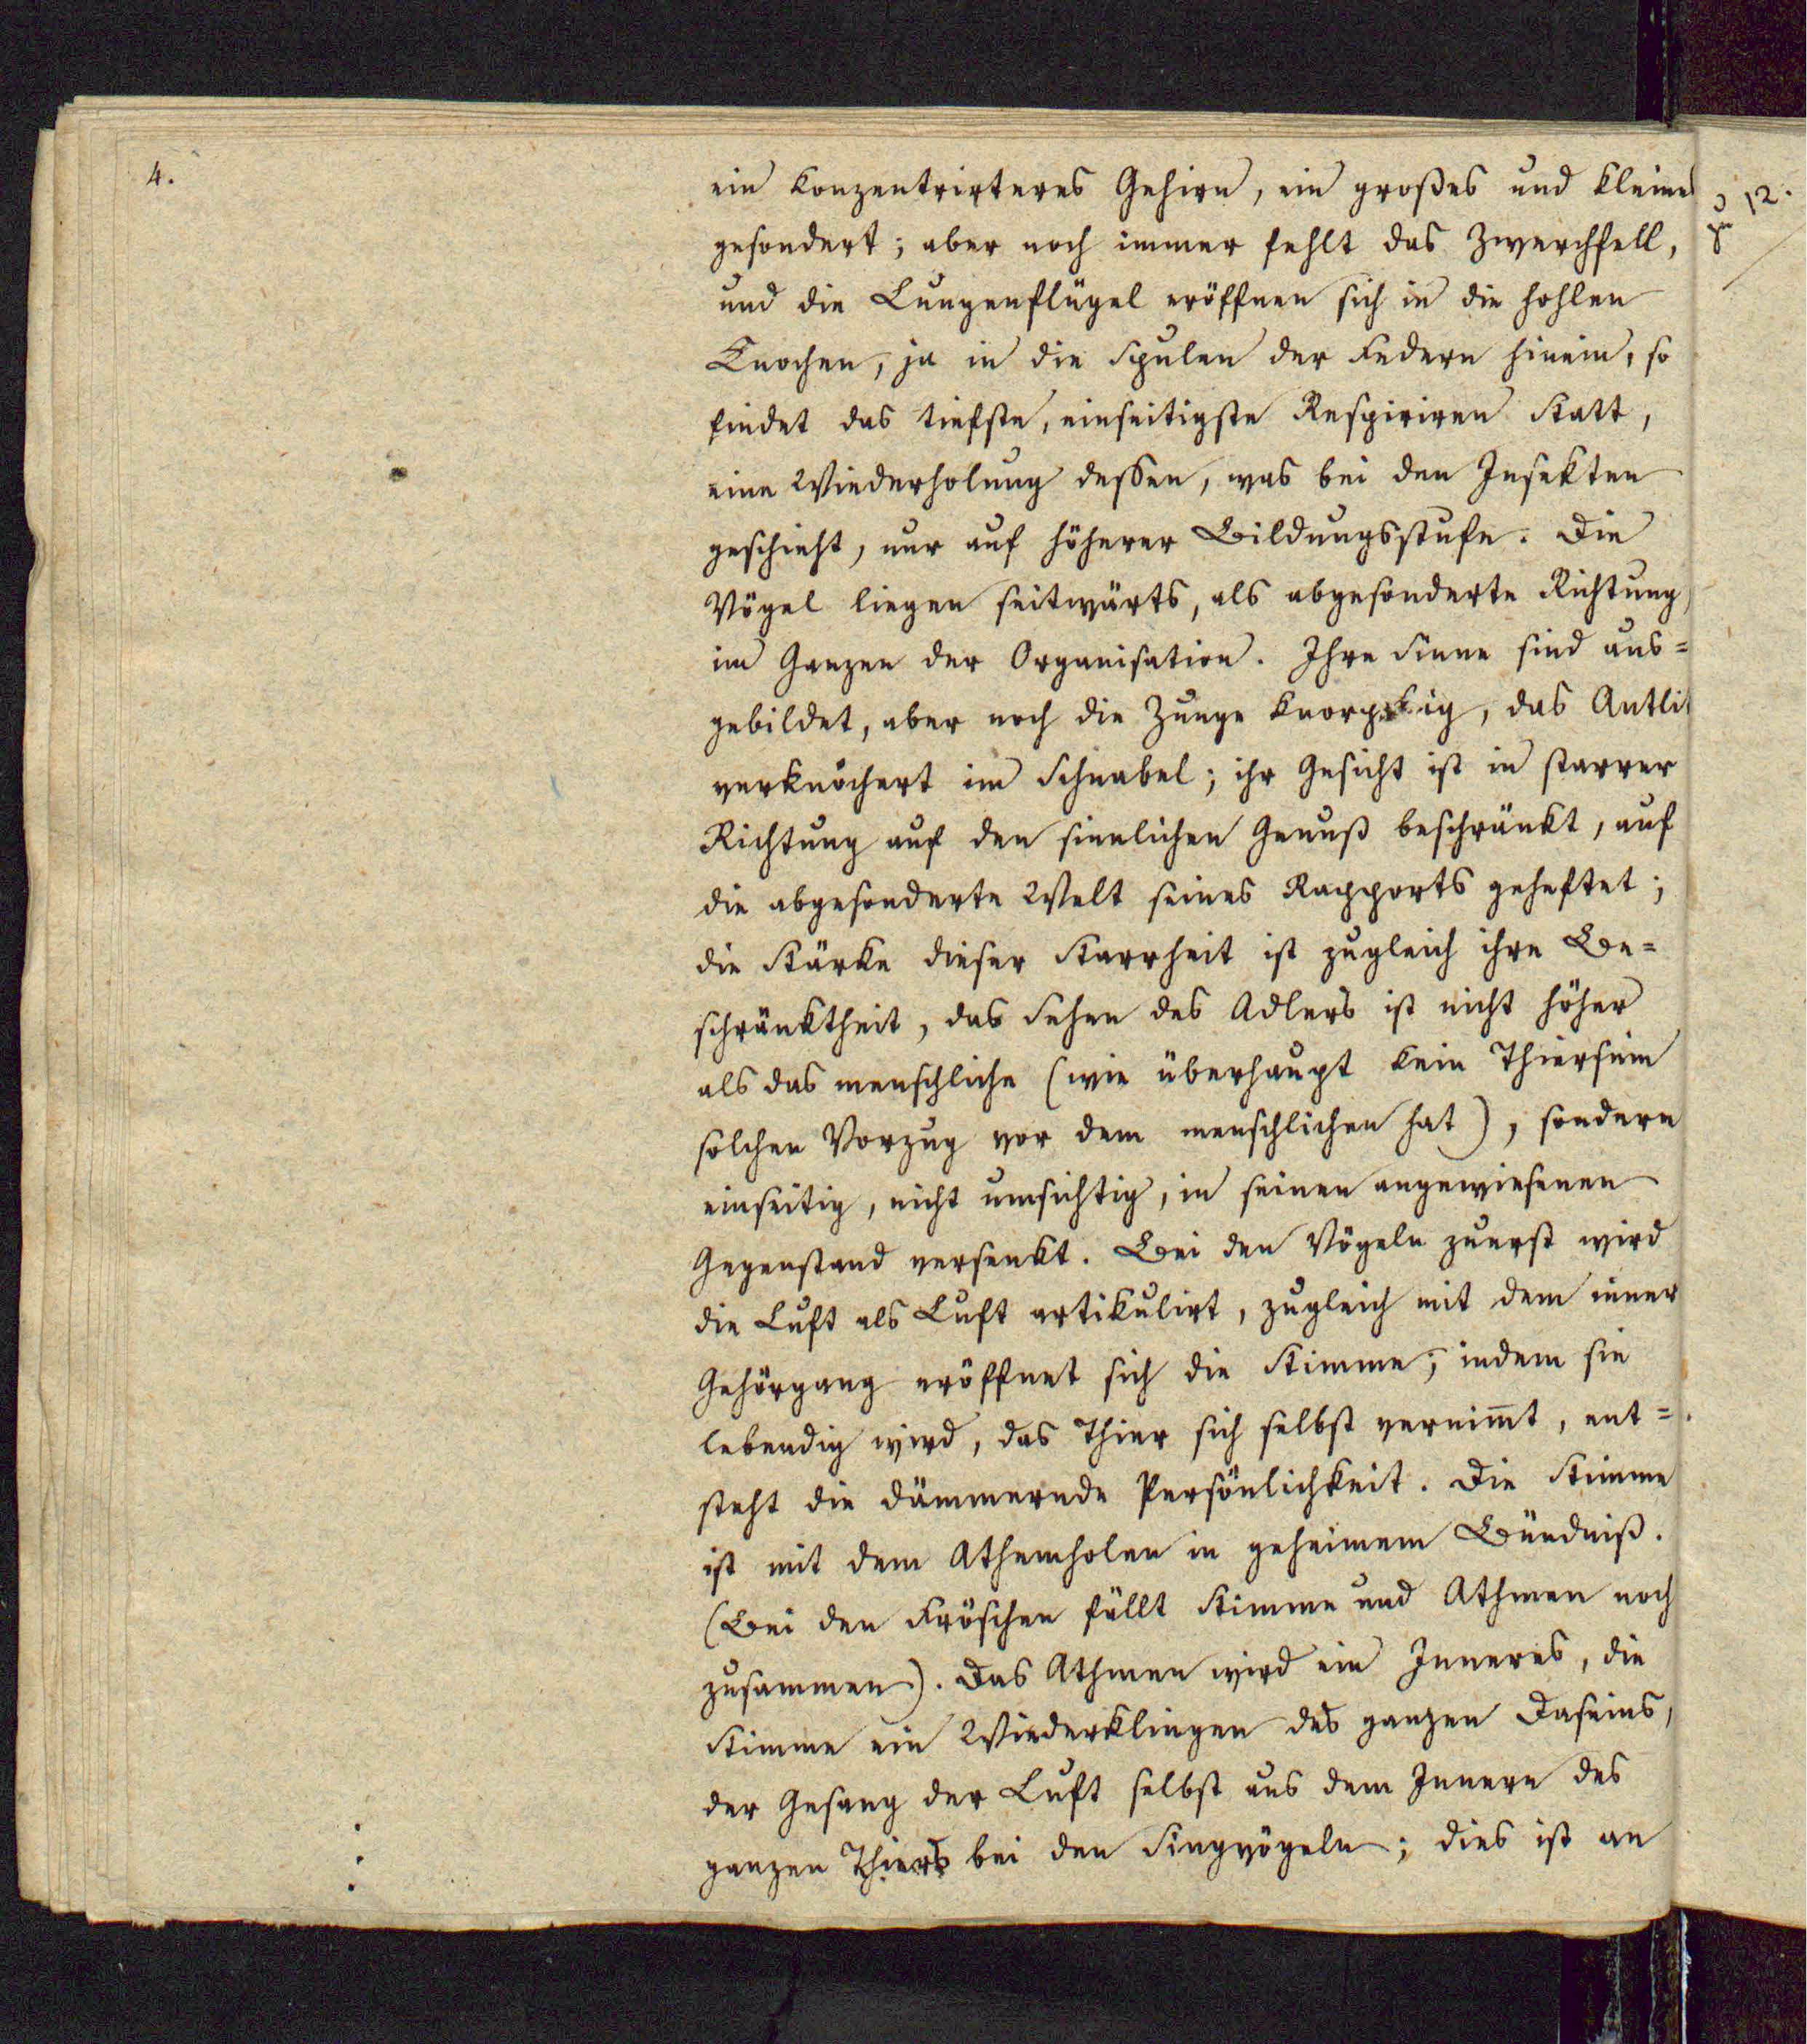 4.
ein konzentrirteres Gehirn, ein großes und kleines
gesondert; aber noch immer fehlt das Zwerchfell,
und die Lungenflügel eröffnen sich in die hohlen
Knochen, ja in die Spulen der Federn hinein, so
findet das tiefste, einseitigste Respiriren Statt,
eine Wiederholung dessen, was bei den Insekten
geschieht, nur auf höherer Bildungsstufe. Die
Vögel liegen seitwärts, als abgesonderte Richtung,
im Ganzen der Organisation. Ihre Sinne sind aus=
gebildet, aber noch die Zunge knorplig, das Antli
verknöchert im Schnabel; ihr Gesicht ist in starrer
Richtung auf den sinnlichen Genuß beschränkt, auf
die abgesonderte Welt seines Rapports geheftet;
die Stärke dieser Starrheit ist zugleich ihre Be=
schränktheit, das Sehen des Adlers ist nicht höher
als das menschliche (wie überhaupt kein Thiersinn
solchen Vorzug vor dem menschlichen hat), sondern
einseitig, nicht umsichtig, in seinen angewiesenen
Gegenstand versenkt. Bei den Vögeln zuerst wird
die Luft als Luft artikulirt, zugleich mit dem inner
Gehörgang eröffnet sich die Stimme; indem sie
lebendig wird, das Thier sich selbst vernim̄t, ent=
steht die dämmernde Persönlichkeit. Die Stimme
ist mit dem Athemholen in geheimem Bündniß.
(Bei den Fröschen fällt Stimme und Athmen noch
zusammen). Das Athmen wird ein Inneres, die
Stimme ein Wiederklingen des ganzen Daseins,
der Gesang der Luft selbst aus dem Innern des
ganzen Thiers bei den Singvögeln; dies ist an
12.